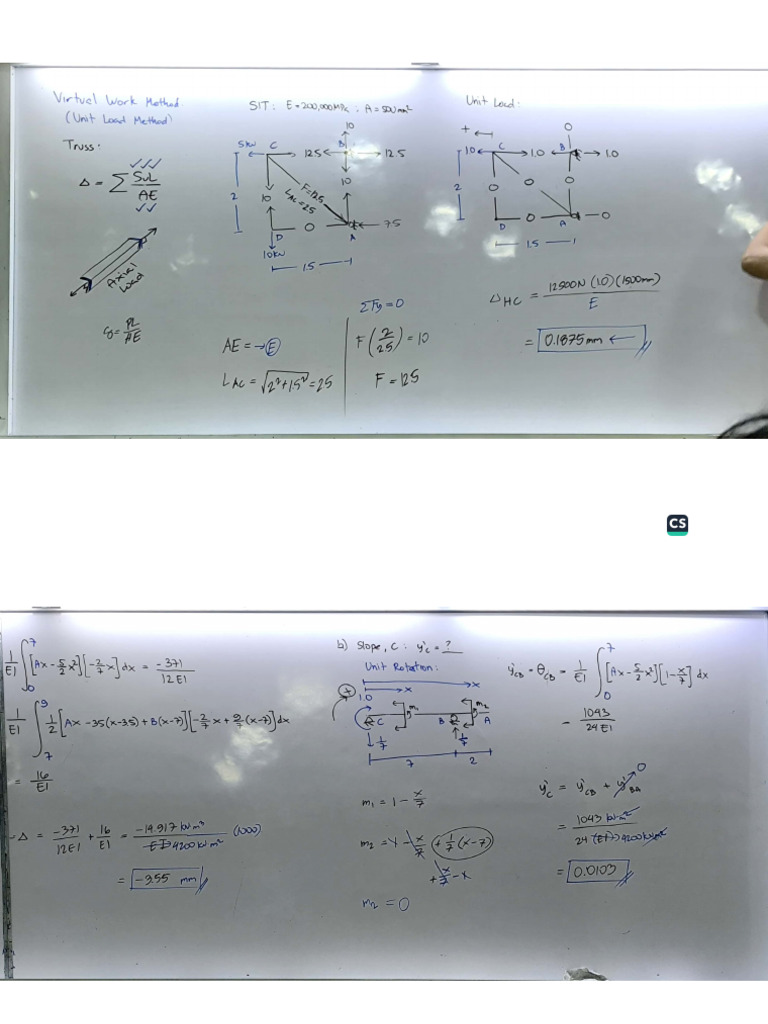 Virtual Work Method.
(Unit Load Method)
Truss:
Δ = Σ SuL / AE
Axial Load
δ = PL / AE
SIT: E = 200,000 MPa ; A = 500 mm²
10
5 kN C 12.5 B 12.5
10 10
F = 12.5
L AC = 2.5
2
D 0 A 7.5
10 kN
1.5
ΣFy = 0
AE = → E
F (2 / 2.5) = 10
L AC = √2² + 1.5² = 2.5
F = 12.5
Unit Load:
+ 0
1.0 C 1.0 B 1.0
2 0 0 0
D 0 A 0
1.5
Δ HC = 12500N (1.0)(1500mm) / E
= 0.1875 mm
CS
1/EI ∫ 0 7 [Ax - 5/2 x²][-2/7 x] dx = -371 / 12EI
1/EI ∫ 7 9 1/2 [Ax - 35(x-3.5) + B(x-7)][-2/7 x + 9/7 (x-7)] dx
= 16 / EI
Δ = -371 / 12EI + 16 / EI = -14.917 kN m³ / (EI) 4200 kN m² (1000)
= -3.55 mm
b) Slope, C : y'c = ?
Unit Rotation:
x
+ 1.0 x
m1 m2
C B A
1/7 1/7
7 2
m1 = 1 - x/7
m2 = 1 - x/7 + 1/7 (x-7)
+ x/7 - 1
m2 = 0
y'CB = θCB = 1/EI ∫ 0 7 [Ax - 5/2 x²][1 - x/7] dx
= 1043 / 24EI
y'c = y'CB + y'BA 0
= 1043 kN m² / 24 (EI) 4200 kN m²
= 0.0103